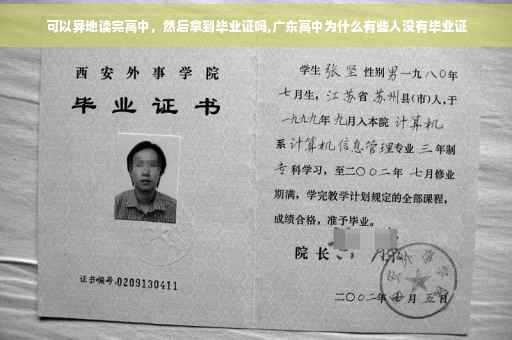 可以异地读完高中，然后拿到毕业证吗,广东高中为什么有些人没有毕业证
西安外事学院
毕业证书
证书编号:0209130411
学生 张坚 性别男一九八〇年
七月生，江苏省苏州县(市)人,于
一九九九年九月入本院 计算机
系 计算机信息管理专业 三年制
专科学习，至二〇〇二年 七月修业
期满，学完教学计划规定的全部课程，
成绩合格，准予毕业。
院长
二〇〇二年 月五日